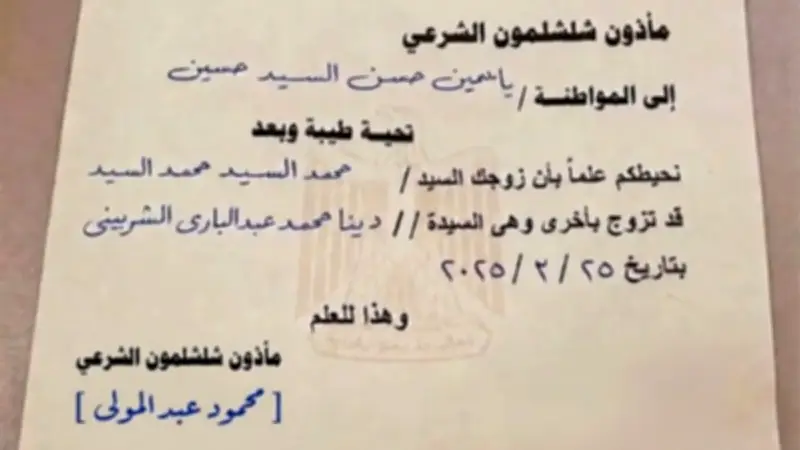 مأذون شلشلمون الشرعي
إلى المواطنة / ياسمين حسن السيد حسين
تحية طيبة وبعد
نحيطكم علماً بأن زوجك السيد / محمد السيد محمد السيد
قد تزوج بأخرى وهى السيدة // دينا محمد عبدالبارى الشربينى
بتاريخ ٢٥ / ٢ / ٢٠٢٥
وهذا للعلم
مأذون شلشلمون الشرعي
[ محمود عبد المولى ]